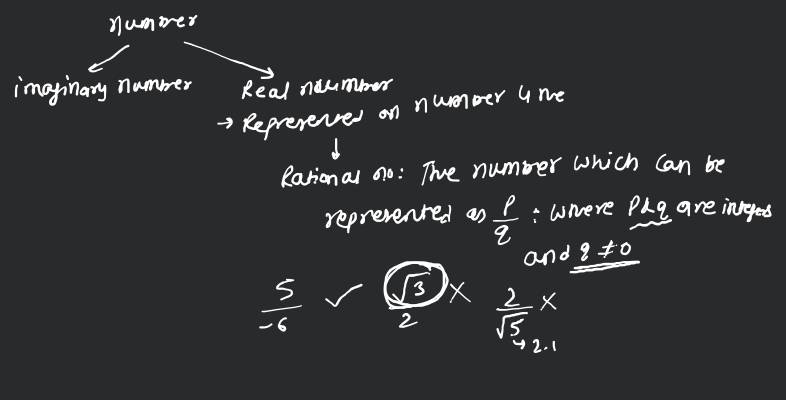 number
imaginary number Real number
→ Represented on number line
Rational no: The number which can be
represented as p/q : where p & q are integers
and q ≠ 0
5/-6 ✓ √3/2 × 2/√5 ×
→ 2.1